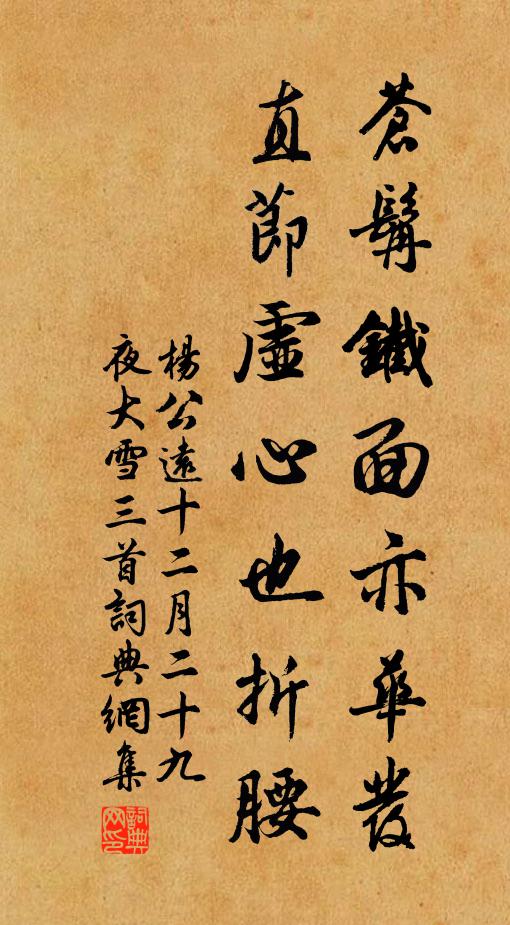 蒼髯鐵面亦華發
直節虛心也折腰
楊公遠十二月二十九
夜大雪三首詞典網集
詞典网印